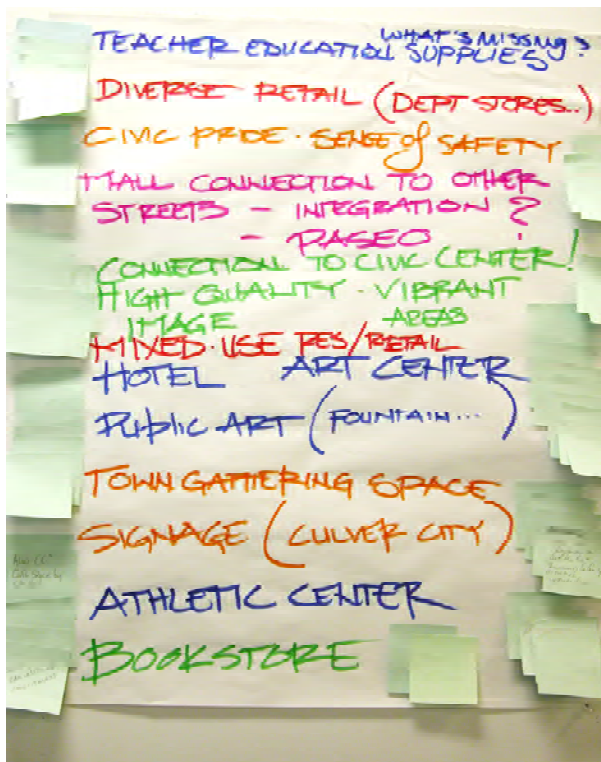 WHAT'S MISSING?
TEACHER EDUCATION SUPPLIES
DIVERSE RETAIL (DEPT STORES..)
CIVIC PRIDE · SENSE of SAFETY
MALL CONNECTION TO OTHER
STREETS – INTEGRATION ?
– PASEO !
CONNECTION TO CIVIC CENTER!
HIGH QUALITY · VIBRANT
IMAGE AREAS
MIXED·USE RES/RETAIL
HOTEL ART CENTER
PUBLIC ART (FOUNTAIN...)
TOWN GATHERING SPACE
SIGNAGE (CULVER CITY)
ATHLETIC CENTER
BOOKSTORE